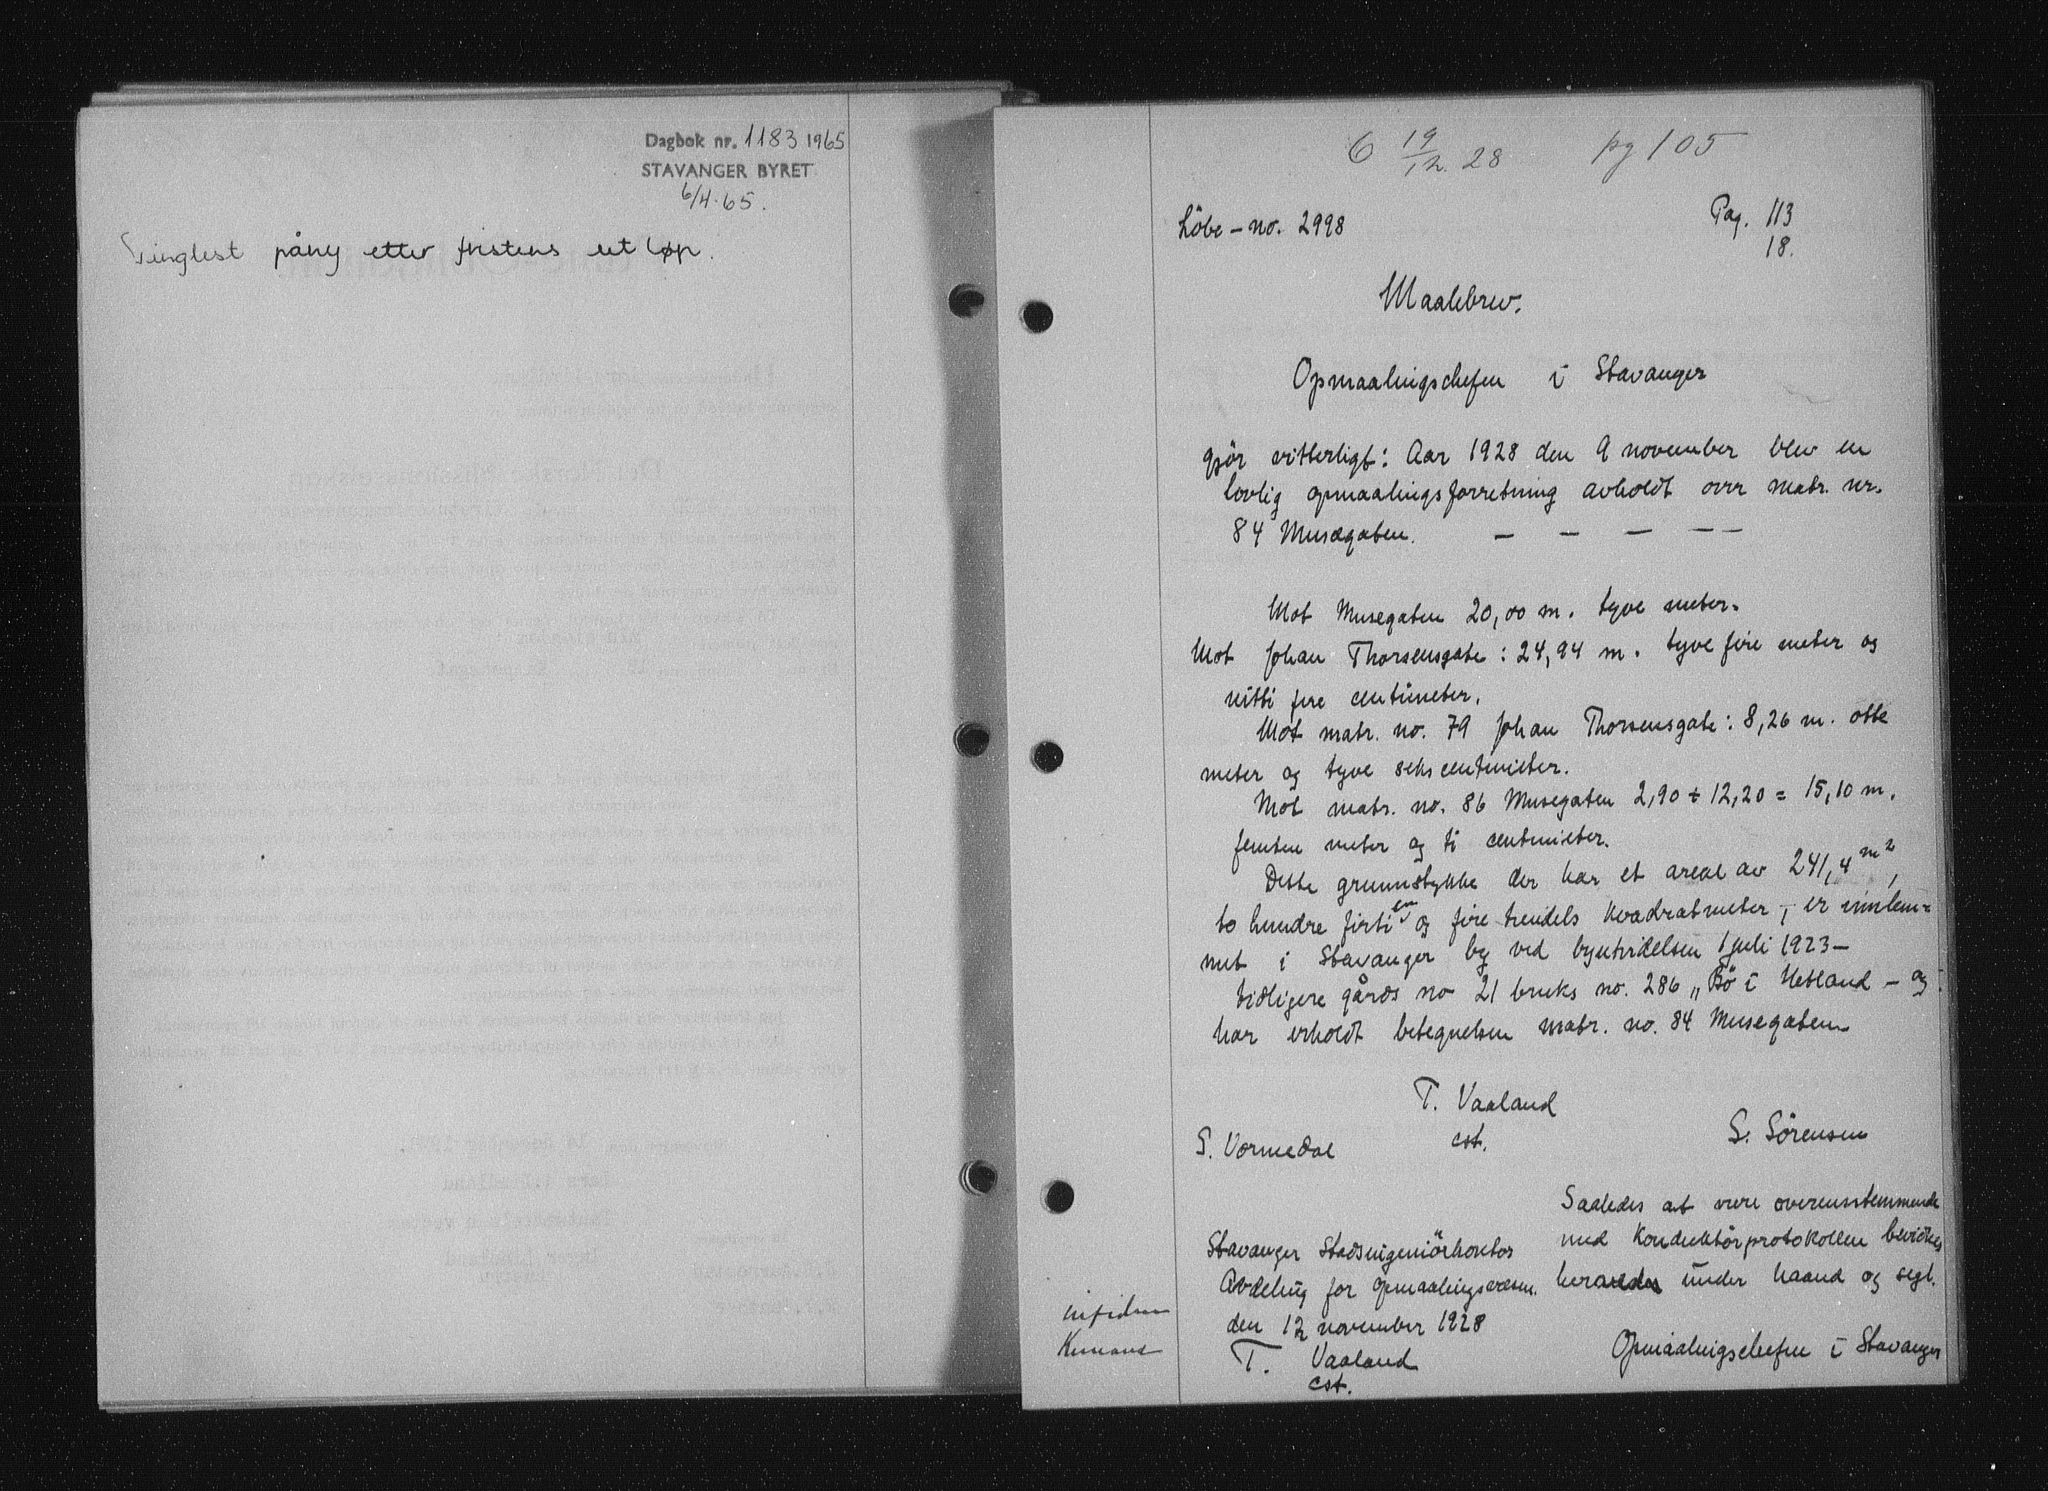 Dagbok nr. 1183 1965
STAVANGER BYRET
6/4.65.
Tinglest påny etter fristens utløp.
6 19/12. 28 pg 105
Löbe-no. 2998
Pag. 113
18.
Maalebrev.
Opmaalingschefen i Stavanger
gjör vitterligt: Aar 1928 den 9 november blev en
lovlig opmaalingsforretning avholdt over matr. nr.
84 Musegaten. — — — — —
Mot Musegaten 20,00 m. tyve meter.
Mot Johan Thorsensgate: 24,94 m. tyve fire meter og
nitti fire centimeter.
Mot matr. no. 79 Johan Thorsensgate: 8,26 m. otte
meter og tyve seks centimeter.
Mot matr. no. 86 Musegaten 2,90 + 12,20 = 15,10 m.
femten meter og ti centimeter.
Dette grunnstykke der har et areal av 241,4 m²,
to hundre firti en og fire tiendels kvadratmeter, er innlem-
met i Stavanger by ved byutvidelsen 1 juli 1923 —
tidligere gårds no 21 bruks no. 286 „Bö i Hetland — og
har erholdt betegnelsen matr. no. 84 Musegaten
T. Vaaland
cst.
S. Vormedal
S. Sörensen
Stavanger Stadsingeniörkontor
Avdeling for opmaalingsvesen.
den 12 november 1928
T. Vaaland
cst.
Saaledes at være overensstemmende
med Konduktörprotokollen bevidnes
herved under haand og segl.
Opmaalingschefen i Stavanger